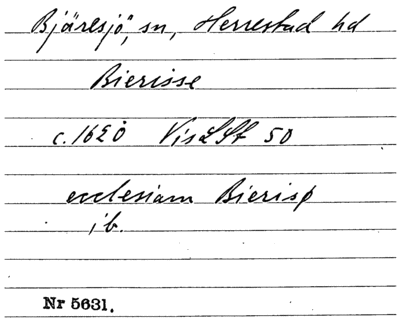 Bjäresjö, sn, Herrestad hd
Bierisse
c. 1620 VisLSt 50
ecclesiam Bierisø
ib.
Nr 5631.